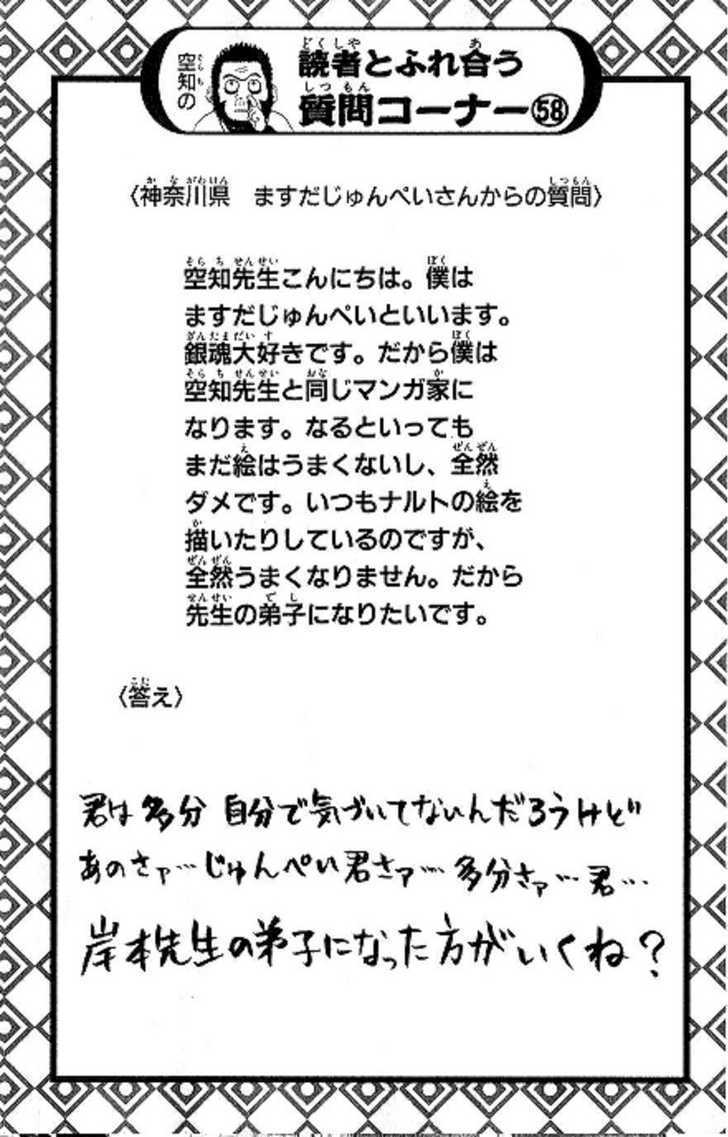 空知の
読者とふれ合う
質問コーナー58
〈神奈川県　ますだじゅんぺいさんからの質問〉
空知先生こんにちは。僕は
ますだじゅんぺいといいます。
銀魂大好きです。だから僕は
空知先生と同じマンガ家に
なります。なるといっても
まだ絵はうまくないし、全然
ダメです。いつもナルトの絵を
描いたりしているのですが、
全然うまくなりません。だから
先生の弟子になりたいです。
〈答え〉
君は多分 自分で気づいてないんだろうけど
あのさァ…じゅんぺい君さァ…多分さァ…君…
岸本先生の弟子になった方がいくね？